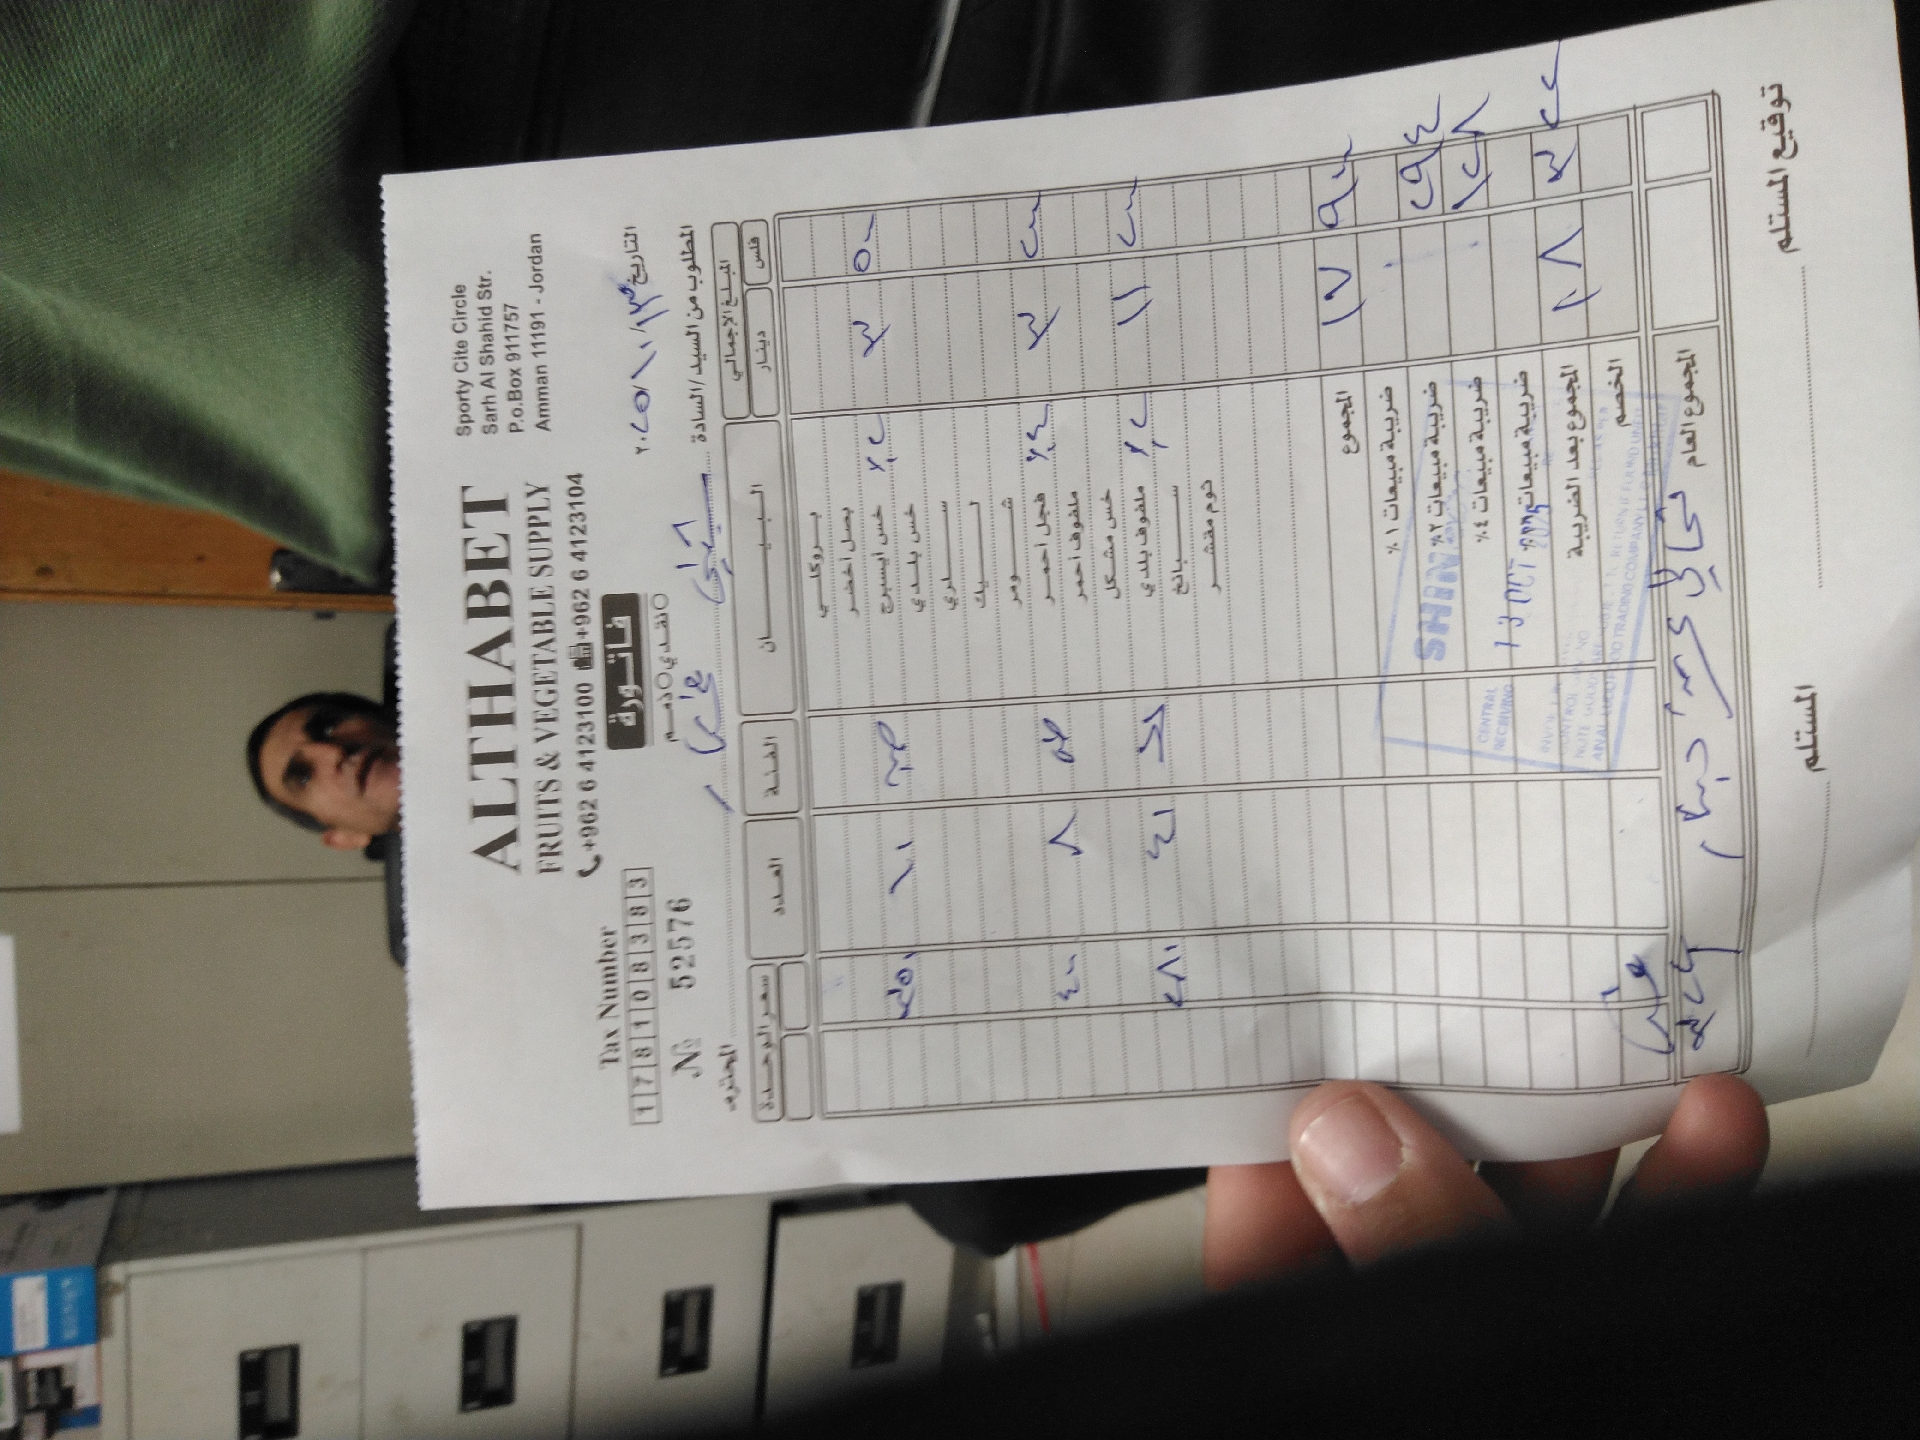 ALTHABET
FRUITS & VEGETABLE SUPPLY
+962 6 4123100 +962 6 4123104
Sporty Cite Circle
Sarh Al Shahid Str.
P.o.Box 911757
Amman 11191 - Jordan
Tax Number
178108383
№ 52576
فاتورة
نقدي ذمم
التاريخ ٢٠٢٥/١٠/١٣
المطلوب من السيد/السادة
المحترم
سعر الوحدة العدد الفئة البيان المبلغ الاجمالي
دينار فلس
بروكلي
بصل أخضر
٣٥٠ ١٠ خس ايسبرج ٢٪ ٣ ٥٠٠
خس بلدي
سلري
ليك
شومر
٤٠٠ ٨ فجل احمر ٤٪ ٣ ٢٠٠
ملفوف أحمر
خس مشكل
٢٨٠ ٤٠ ملفوف بلدي ٢٪ ١١ ٢٠٠
سبانخ
ثوم مقشر
المجموع ١٧ ٩٠٠
ضريبة مبيعات ١٪
ضريبة مبيعات ٢٪ ٢٩٤
ضريبة مبيعات ٤٪ ١٢٨
ضريبة مبيعات
المجموع بعد الضريبة ١٨ ٣٢٢
الخصم
المجموع العام
CENTRAL
RECEIVING
13 OCT 2025
المستلم
توقيع المستلم